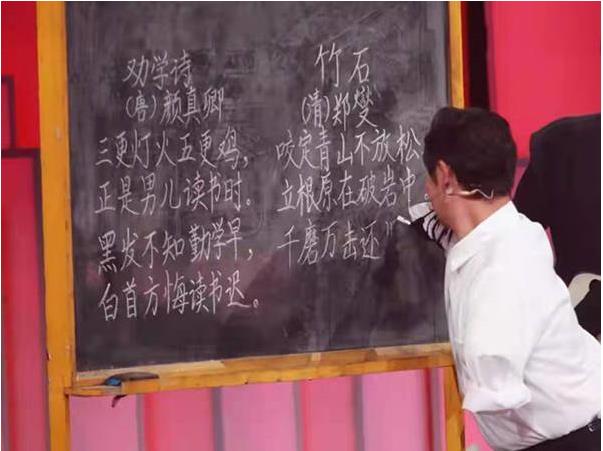 劝学诗
(唐)颜真卿
三更灯火五更鸡,
正是男儿读书时。
黑发不知勤学早,
白首方悔读书迟。
竹石
(清)郑燮
咬定青山不放松
立根原在破岩中。
千磨万击还